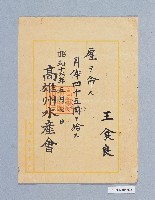 王食良
雇ヲ命ス
月俸四十五圓ヲ給ス
昭和十六年五月一日
高雄州水産會